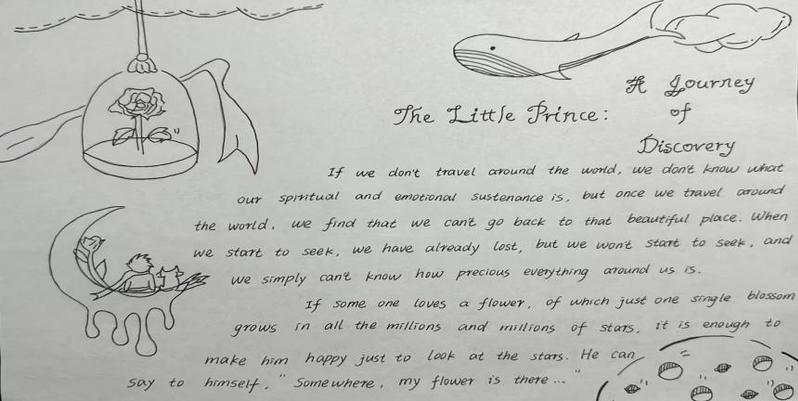 A Journey
The Little Prince: of
Discovery
If we don't travel around the world, we don't know what
our spiritual and emotional sustenance is, but once we travel around
the world, we find that we can't go back to that beautiful place. When
we start to seek, we have already lost, but we won't start to seek, and
we simply can't know how precious everything around us is.
If some one loves a flower, of which just one single blossom
grows in all the millions and millions of stars, it is enough to
make him happy just to look at the stars. He can
say to himself, "Somewhere, my flower is there..."